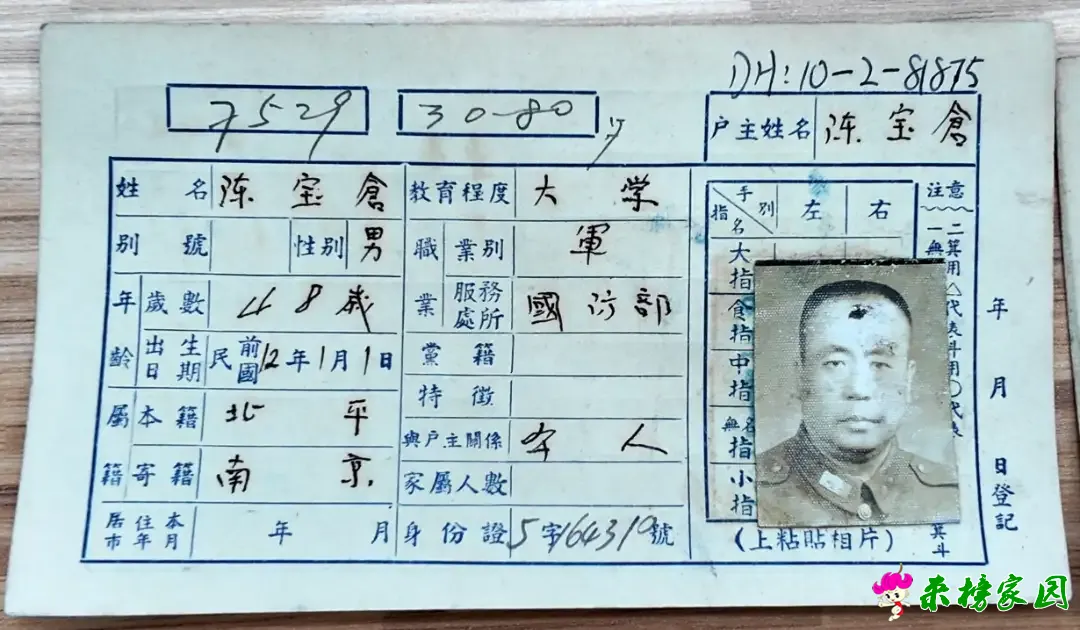 DH:10-2-81875
7529
30-80
户主姓名 陈宝倉
姓名 陈宝倉
教育程度 大学
别號
性别 男
職業 業别 軍
年齡 歲數 48歲
服務處所 國防部
出生日期 民國前12年1月1日
黨籍
特徵
屬籍 本籍 北平
與戶主關係 本人
寄籍 南京
家屬人數
居住本市年月 年 月
身份證 5字164310號
手别 指名 左 右
大指
食指
中指
無名指
小指
(上粘貼相片)
注意
二箕用△代表斗用〇代表
一無
箕斗
年 月 日登記
来榜家园